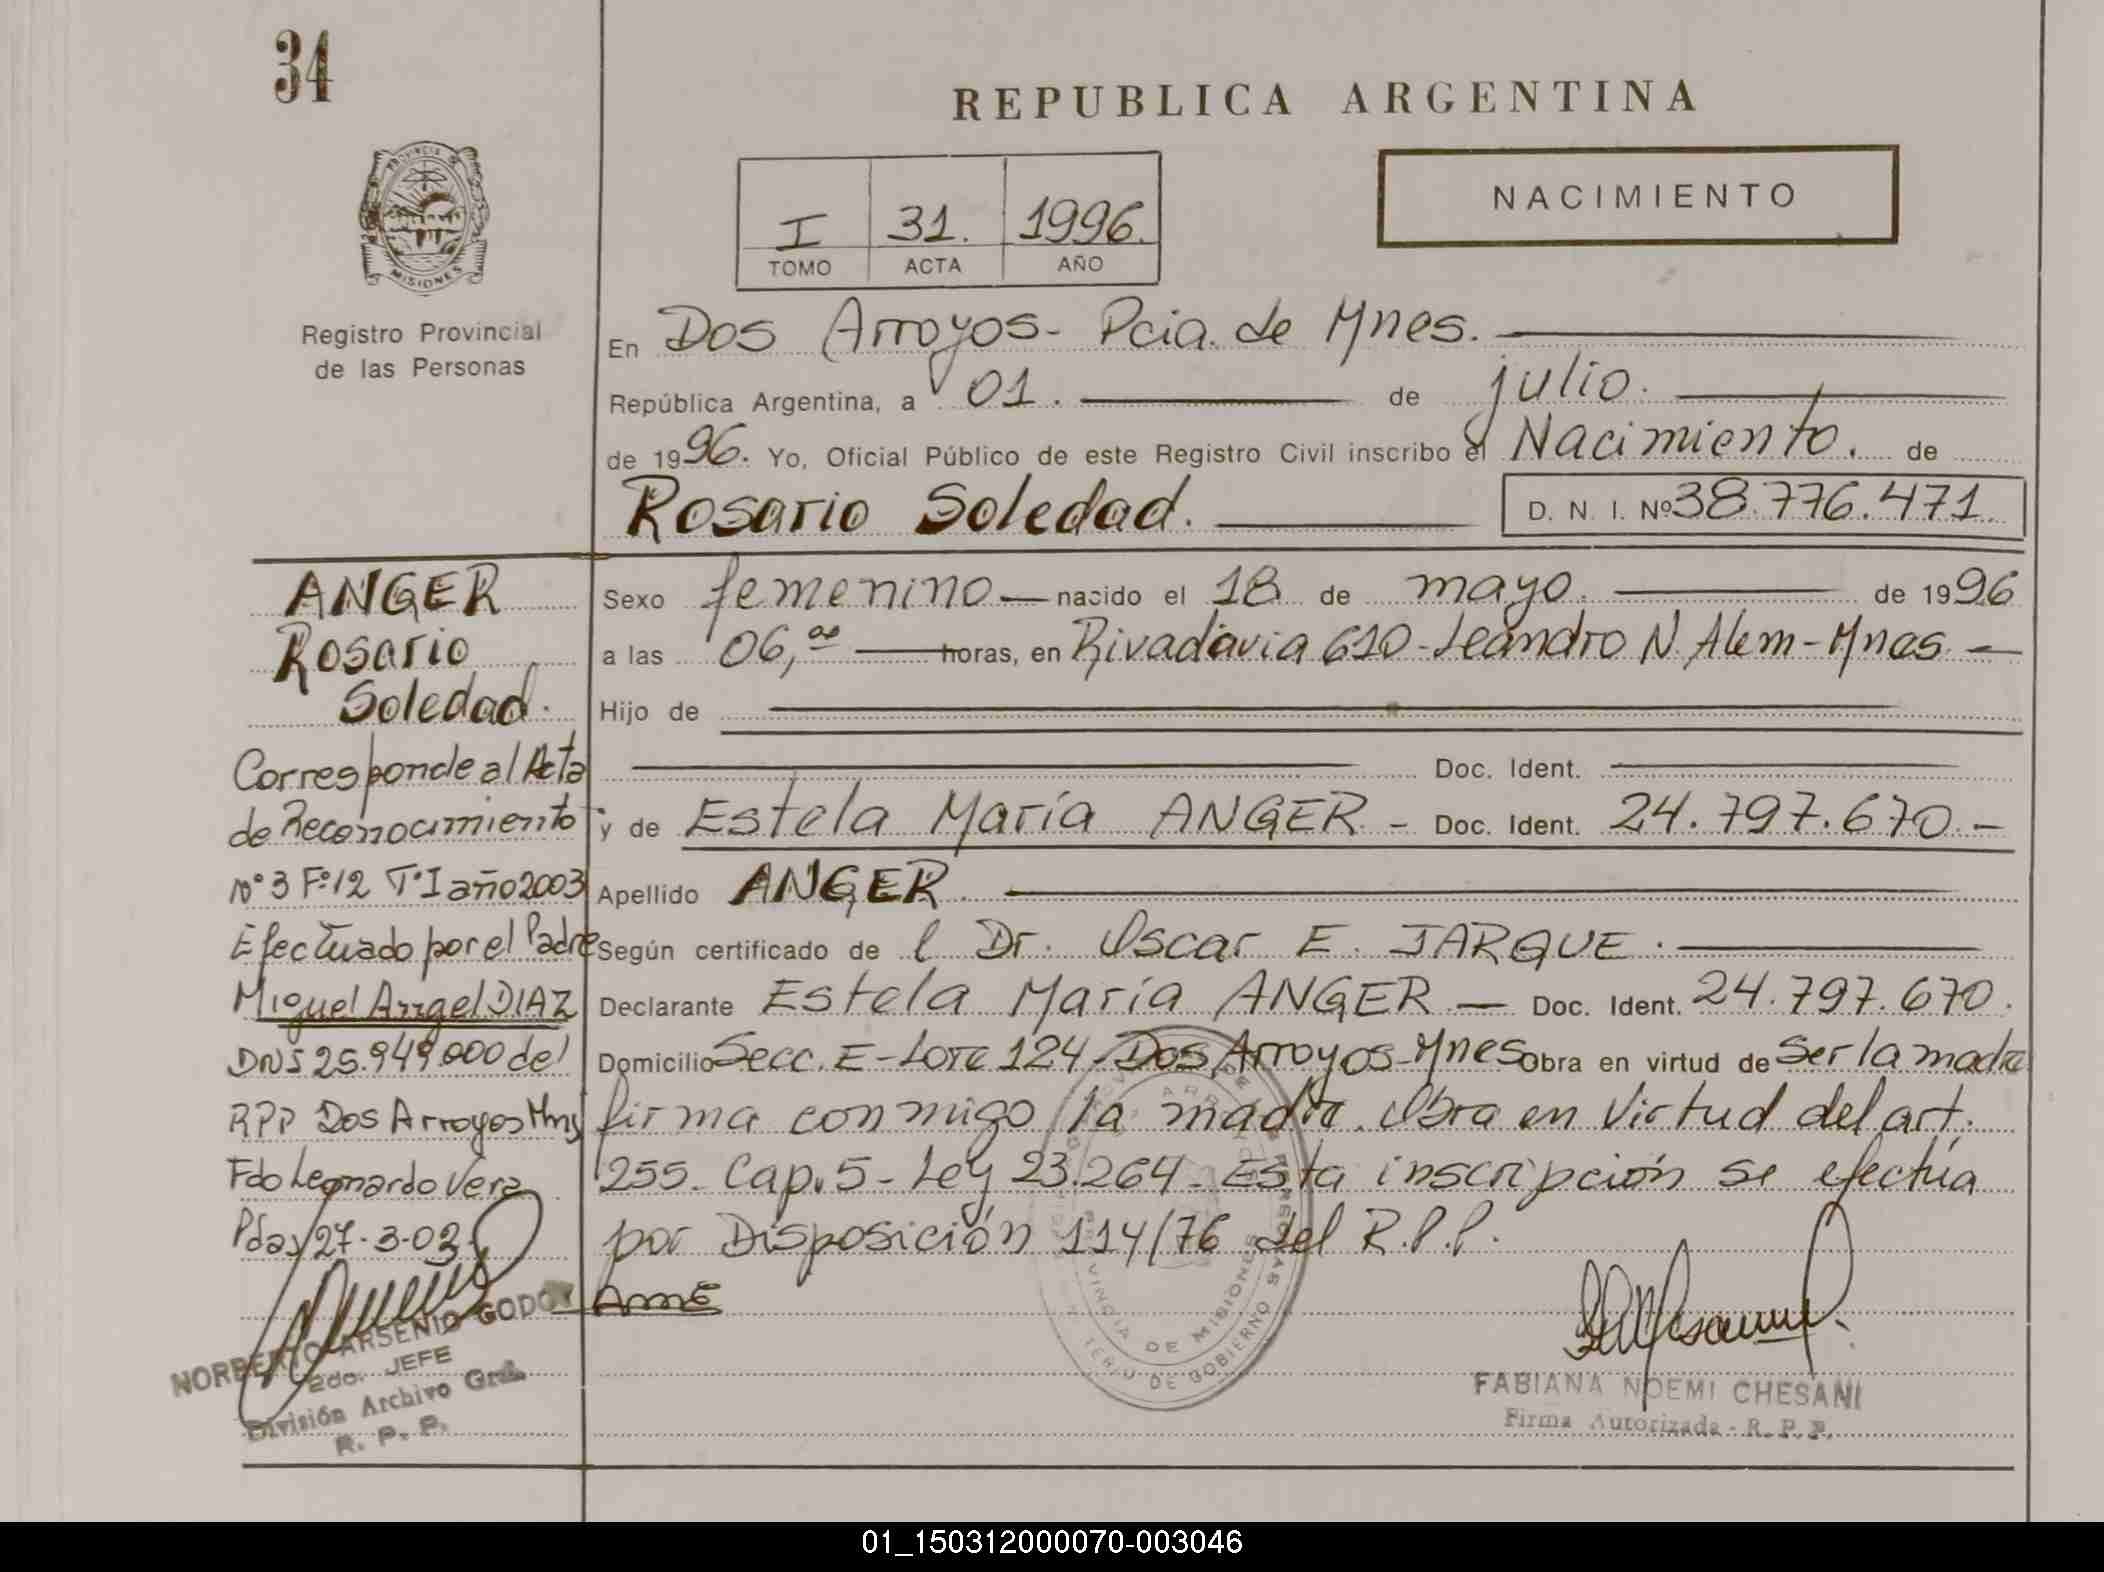 34
REPUBLICA ARGENTINA
PROVINCIA DE
MISIONES
Registro Provincial
de las Personas
I 31. 1996.
TOMO ACTA AÑO
NACIMIENTO
En Dos Arroyos- Pcia. de Mnes.
República Argentina, a 01. de julio.
de 1996. Yo, Oficial Público de este Registro Civil inscribo el Nacimiento. de
Rosario Soledad. D. N. I. Nº 38.776.471.
ANGER
Rosario
Soledad.
Corresponde al Acta
de Reconocimiento
Nº 3 Fº 12 Tº I año 2003
Efectuado por el Padre
Miguel Angel DIAZ
DNI 25.949.000 del
RPP Dos Arroyos Mns
Fdo Leonardo Vera
Pdas 27-3-03
NORBERTO ARSENIO GODOY
2do. JEFE
División Archivo Gral.
R. P. P.
Sexo femenino — nacido el 18 de mayo. de 1996
a las 06,00 — horas, en Rivadavia 610 - Leandro N. Alem - Mnes. —
Hijo de
Doc. Ident.
y de Estela María ANGER - Doc. Ident. 24.797.670.-
Apellido ANGER.
Según certificado de l Dr. Oscar E. JARQUE.
Declarante Estela María ANGER. — Doc. Ident. 24.797.670.
Domicilio Secc. E - Lote 124 - Dos Arroyos - Mnes Obra en virtud de Ser la madre
firma conmigo la madre. Obra en Virtud del art.
255. Cap. 5 - Ley 23.264 - Esta inscripción se efectúa
por Disposición 114/76 del R.P.P.
FABIANA NOEMI CHESANI
Firma Autorizada - R. P. P.
PROVINCIA DE MISIONES
DE GOBIERNO
01_150312000070-003046